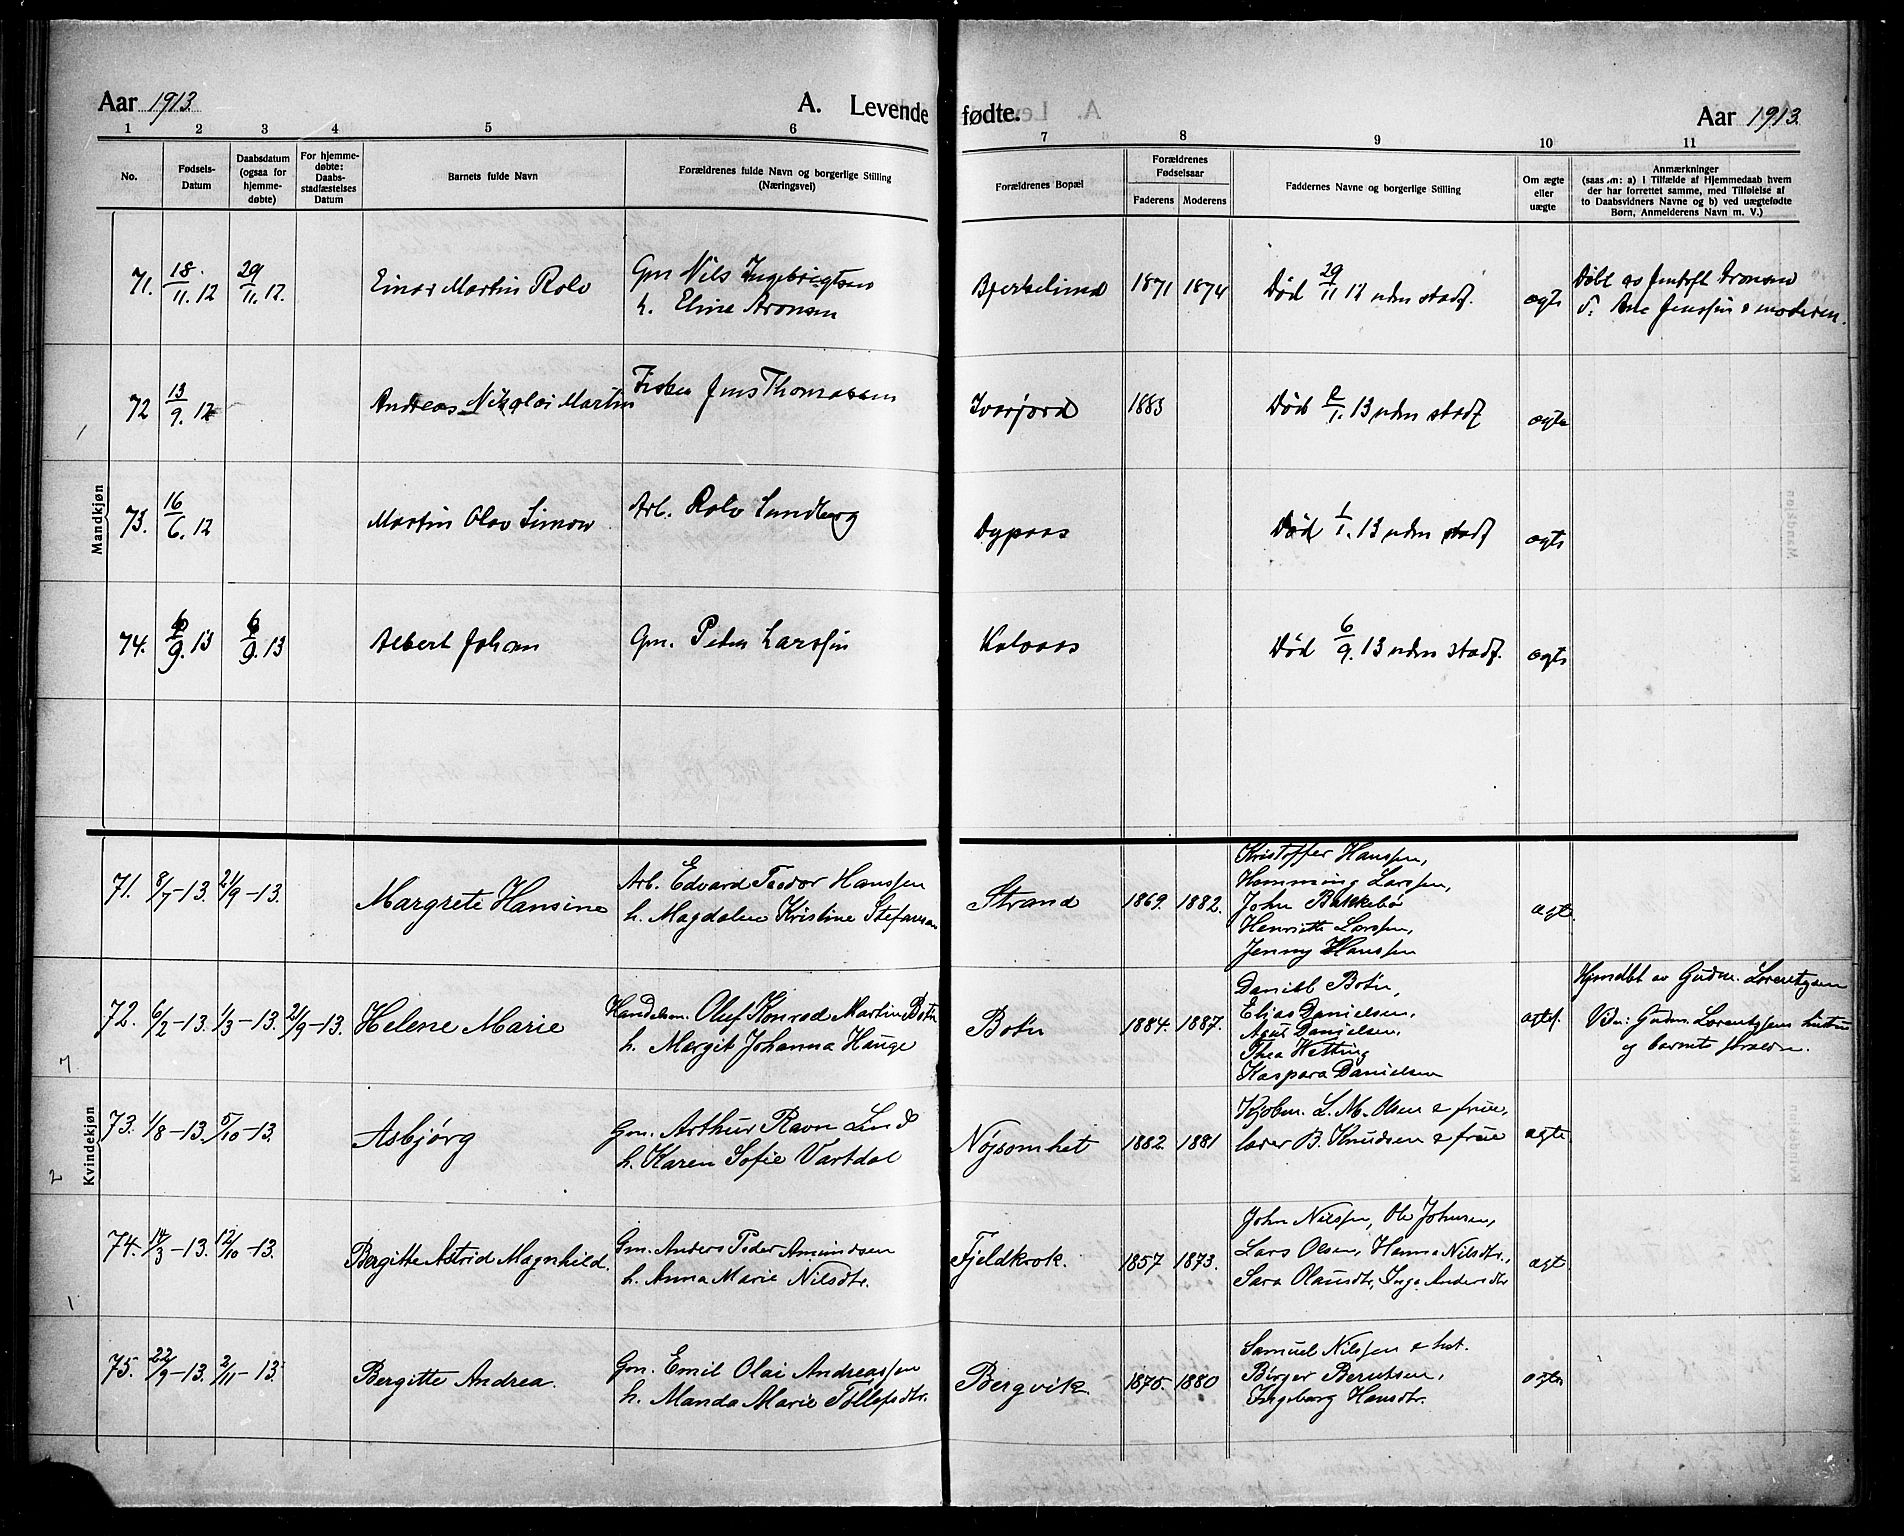 Aar 1913 A. Levende fødte. Aar 1913
1 2 3 4 5 6 7 8 9 10 11
No.
Fødsels-
Datum
Daabsdatum
(ogsaa for
hjemme-
døbte)
For hjemme-
døbte:
Daabs-
stadfæstelses
Datum
Barnets fulde Navn
Forældrenes fulde Navn og borgerlige Stilling
(Næringsvei)
Forældrenes Bopæl
Forældrenes
Fødselsaar
Faderens Moderens
Faddernes Navne og borgerlige Stilling
Om ægte
eller
uægte
Anmærkninger
(saas m: a) i Tilfælde af Hjemmedaab hvem
der har forrettet samme, med Tilføielse af
to Daabsvidners Navne og b) ved uægtefødte
Børn, Anmelderens Navn m. V.)
Mandkjøn
71. 18/11. 12 29/11. 12. Einar Martin Rolv
Gm Nils Ingebrigtsen
h. Eline Aronsen
1871 1874 Død 29/11 12 uden stadf. ægte
Døbt av Jentoft Aronsen
72 13/9. 12 Andreas Nikolai Martin
Fisker Jens Thomassen
Ivarfjord 1883 Død 2/1. 13 uden stadf ægte
73. 16/6. 12 Martin Olav Simon
Arb. Rolv Sundberg
Dypaas Død 1/1. 13 uden stadf ægte
74. 6/9. 13 6/9. 13 Albert Johan
Gm. Peder Larssen
Kalvaas Død 6/9. 13 uden stadf. ægte
Kvindekjøn
71. 8/7-13. 21/9-13. Margrete Hansine
Arb. Edvard Teodor Hanssen
h. Magdalene Kristine Stefansen
Strand 1869. 1882.
Kristoffer Hanssen,
Hemming Larssen,
John Bakkebø
Henriette Larssen,
Jenny Hanssen
ægte
72. 6/2-13. 1/3-13. 21/9-13. Helene Marie
Handelsm. Oluf Konrad Martin Botn
h. Margit Johanna Hauge
Botn 1884. 1887.
Daniel Botn,
Elias Danielsen,
Agut Danielsen,
Thea Hetting
Kaspara Danielsen
ægtef.
Hjemdbt av Gudm. Lorentzen
Vidn: Gudm. Lorentzens hustru
og barnets forældre.
73. 1/8-13. 5/10-13. Asbjørg
Gm. Arthur Ravn Lind
h. Karen Sofie Vartdal
Nøjsomhet 1882. 1881
Kjøbm. L. M. Olsen & frue,
lærer B. Knudsen & frue
ægte
74. 14/3-13. 12/10-13. Bergitte Astrid Magnhild.
Gm. Anders Peder Amundsen
h. Anna Marie Nilsdtr.
Fjeldkrok. 1857 1873.
John Nilssen, Ole Johnsen,
Lars Olsen, Hanna Nilsdtr.,
Sara Olausdtr, Inga Andersdtr
ægte
75. 22/9-13. 2/11-13. Bergitte Andrea.
Gm. Emil Olai Andreassen
h. Manda Marie Tollefsdtr.
Bergvik. 1875. 1880
Samuel Nilssen & hst.
Birger Berntsen,
Ingeborg Hansdtr.
ægte